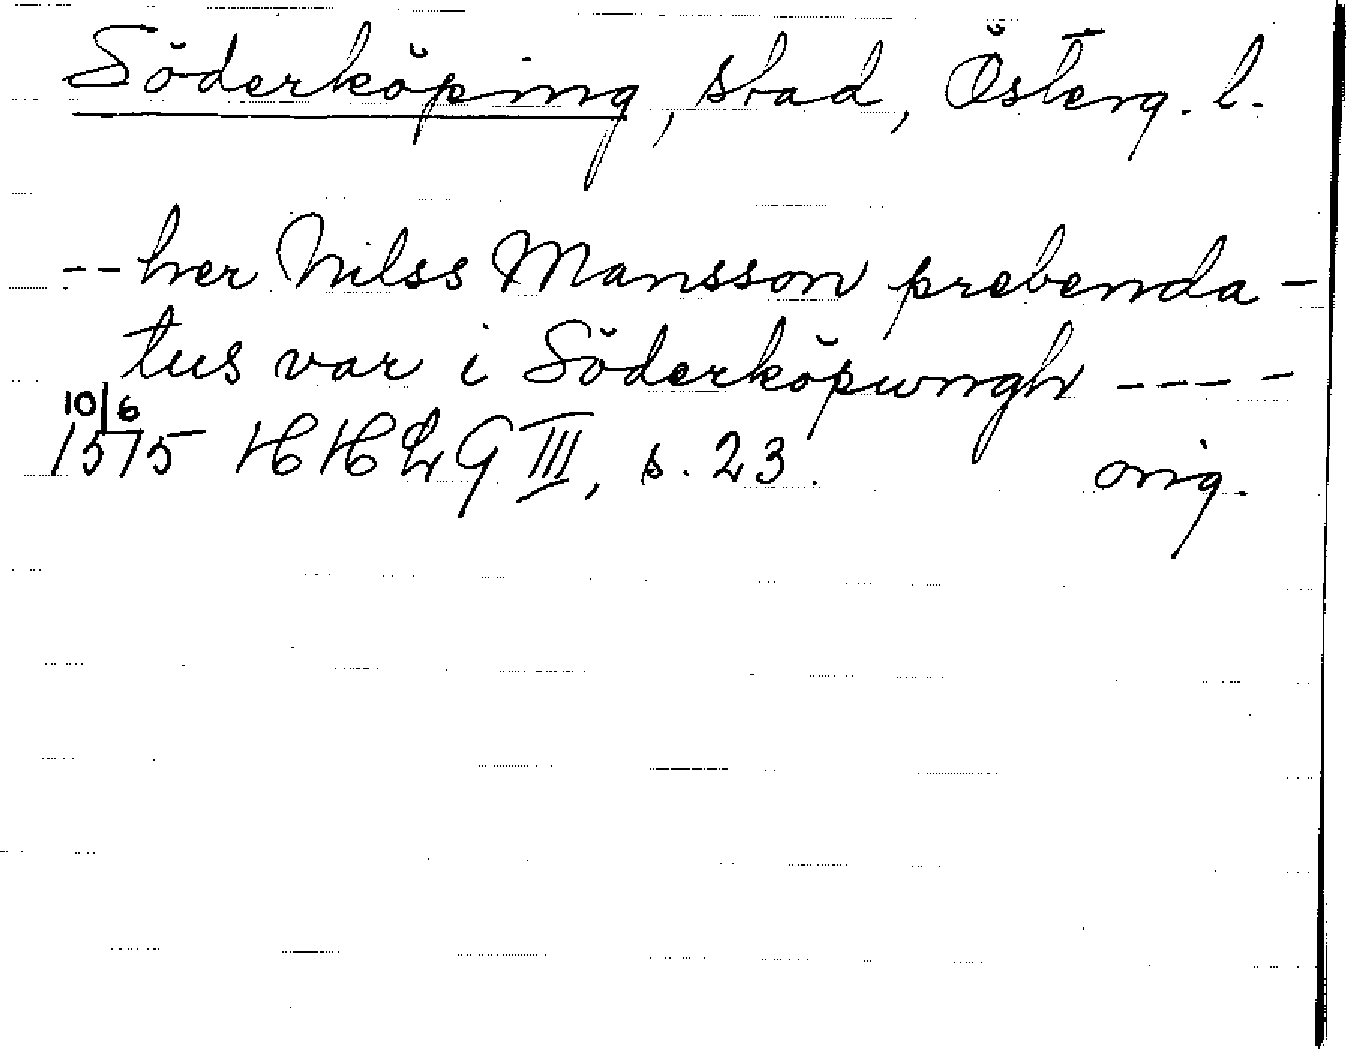 Söderköping, stad, Österg. l.
-- her Nilss Mansson prebenda-
tus var i Söderköpungh ----
10/6
1575 HHLG III, s. 23. orig.